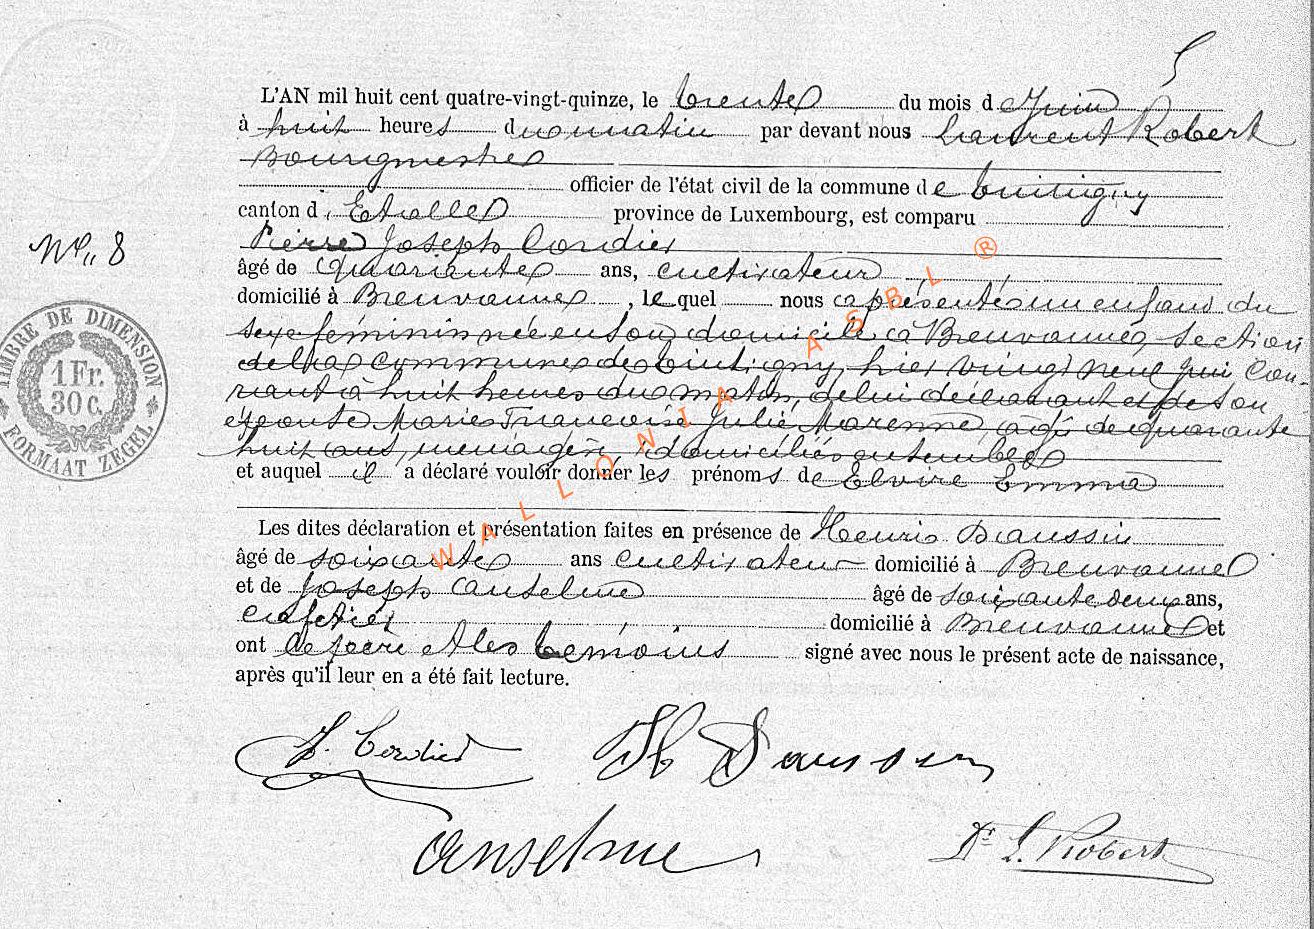 5
L'AN mil huit cent quatre-vingt-quinze, le trente du mois de Juin
à huit heures du matin par devant nous Laurent Robert
Bourgmestre
officier de l'état civil de la commune de Tintigny
canton d'Etalle province de Luxembourg, est comparu
Pierre Joseph Cordier
N° 8
âgé de quarante ans, cultivateur
domicilié à Breuvanne, lequel nous a présenté un enfant du
sexe féminin née en son domicile à Breuvanne, section
de la commune de Tintigny, hier vingt neuf juin cou-
rant à huit heures du matin, de lui déclarant et de son
épouse Marie Françoise Julie Marenne, âgée de quarante
huit ans, ménagère, domiciliés ensemble
et auquel il a déclaré vouloir donner les prénoms de Elvire Emma
Les dites déclaration et présentation faites en présence de Henri Daussin
âgé de soixante ans cultivateur domicilié à Breuvanne
et de Joseph Anselme âgé de soixante deux ans,
cafetier domicilié à Breuvanne et
ont le père et les témoins signé avec nous le présent acte de naissance,
après qu'il leur en a été fait lecture.
J. Cordier H Daussin
Anselme Dr L. Robert
TIMBRE DE DIMENSION
1 Fr.
30 c.
FORMAAT ZEGEL
WALLONIA ASBL ®